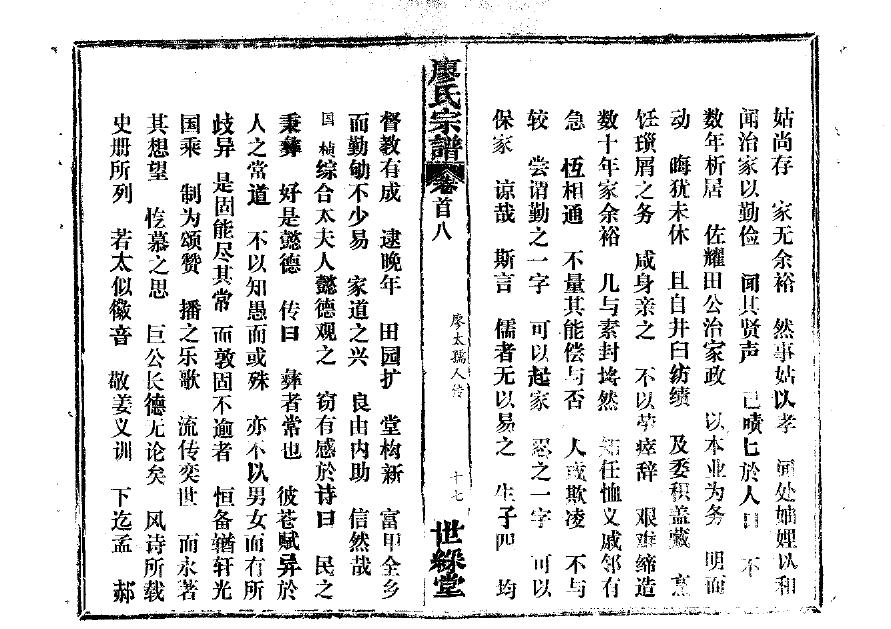 姑尚存 家无余裕 然事姑以孝 间处妯娌以和
闻治家以勤俭 闻其贤声 已啧七於人口 不
数年析居 佐耀田公治家政 以本业为务 明而
动 晦犹未休 且自井臼纺绩 及委积盖藏 烹
饪琐屑之务 咸身亲之 不以劳瘁辞 艰难缔造
数十年家余裕 几与素封埒然 任恤义戚邻有
急 恆相通 不量其能偿与否 人或欺凌 不与
较 尝谓勤之一字 可以起家 忍之一字 可以
保家 谅哉 斯言 儒者无以易之 生子四 均
廖氏宗譜 卷首八 廖太孺人传 十七 世綵堂
督教有成 逮晚年 田园扩 堂构新 富甲全乡
而勤劬不少易 家道之兴 良由内助 信然哉
国桢综合太夫人懿德观之 窃有感於诗曰 民之
秉彝 好是懿德 传曰 彝者常也 彼苍赋异於
人之常道 不以知愚而或殊 亦不以男女而有所
歧异 是固能尽其常 而敦固不逾者 恒备輶轩光
国乘 制为颂赞 播之乐歌 流传奕世 而永著
其想望 忾慕之思 巨公长德无论矣 风诗所载
史册所列 若太似徽音 敬姜义训 下迄孟 郝